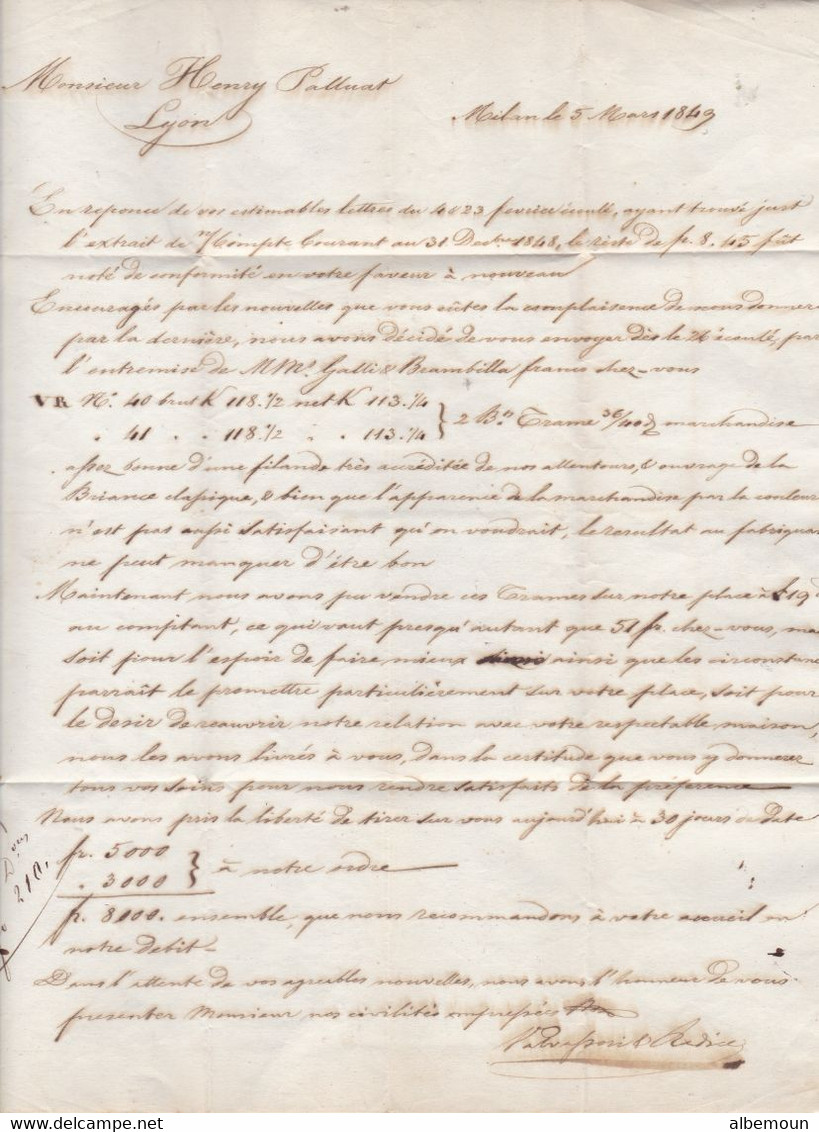 Monsieur Henry Palluat
Lyon
Milan le 5 Mars 1849
En reponce de vos estimables lettres du 4 & 23 fevrier écoulé, ayant trouvé just
l'extrait de n/ Compte Courant au 31 Decbre 1848, le riste de fr. 8.45 fût
noté de conformité en votre faveur à nouveau
Encouragés par les nouvelles que vous eûtes la complaisence de nous donner
par la dernière, nous avons décidé de vous envoyer dès le 26 écoulé, par
l'entremise de M Mrs Galli & Brambilla franco chez-vous
VR No. 40 brut K 118.1/2 net K 113.1/4
" 41 " " 118.1/2 " " 113.1/4 } 2 Bn Trame 36/40 d marchandise
assez bonne d'une filande très accréditée de nos allentours, & ouvrage de la
Briance classique, & bien que l'apparence de la marchandise par la couleur
n'est pas aussi satisfaisant qu'on voudrait, le resultat au fabriquan
ne peut manquer d'être bon
Maintenant nous avons pu vendre ces Trames sur notre place à £19
au comptant, ce qui vaut presqu'autant que 51 fr. chez-vous, ma
soit pour l'espoir de faire mieux ainsi que les circonstanc
parraît le promettre particulièrement sur votre place, soit pour
le desir de reouvrir notre relation avec votre respectable maison,
nous les avons livrés à vous, dans la certitude que vous y donnerez
tous vos soins pour nous rendre satisfaits de la préférence
Nous avons pris la liberté de tirer sur vous aujourd'hui à 30 jours de date
fr. 5000
" 3000 } à notre ordre
fr. 8000. ensemble, que nous recommandons à votre accueil en
notre debit
Dans l'attente de vos agreables nouvelles, nous avons l'honneur de vous
presenter Monsieur nos civilités empressées
Valvassori & Radice
delcampe.net
albemoun